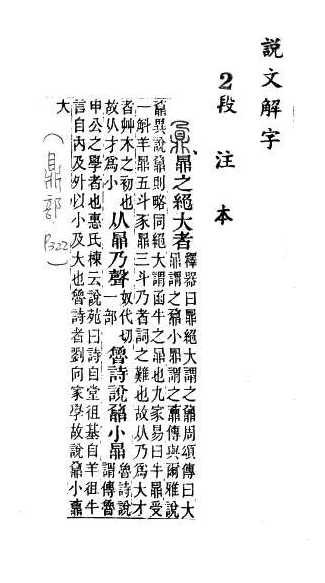 説文解字
2段注本
鼐鼎之絕大者釋器曰鼎絕大謂之鼐周頌傳曰大鼎謂之鼐小鼎謂之鼒傳與爾雅說
鼐異說鼐則略同絕大謂函牛之鼎也九家易曰牛鼎受
一斛羊鼎五斗豕鼎三斗乃者詞之難也故从乃爲大才
者艸木之初也故从才爲小从鼎乃聲奴代切一部魯詩說鼐小鼎魯詩說謂傳魯
申公之學者也惠氏棟云說苑曰詩自堂徂基自羊徂牛
言自內及外以小及大也魯詩者劉向家學故說鼐小鼒
大
(鼎部 P322)